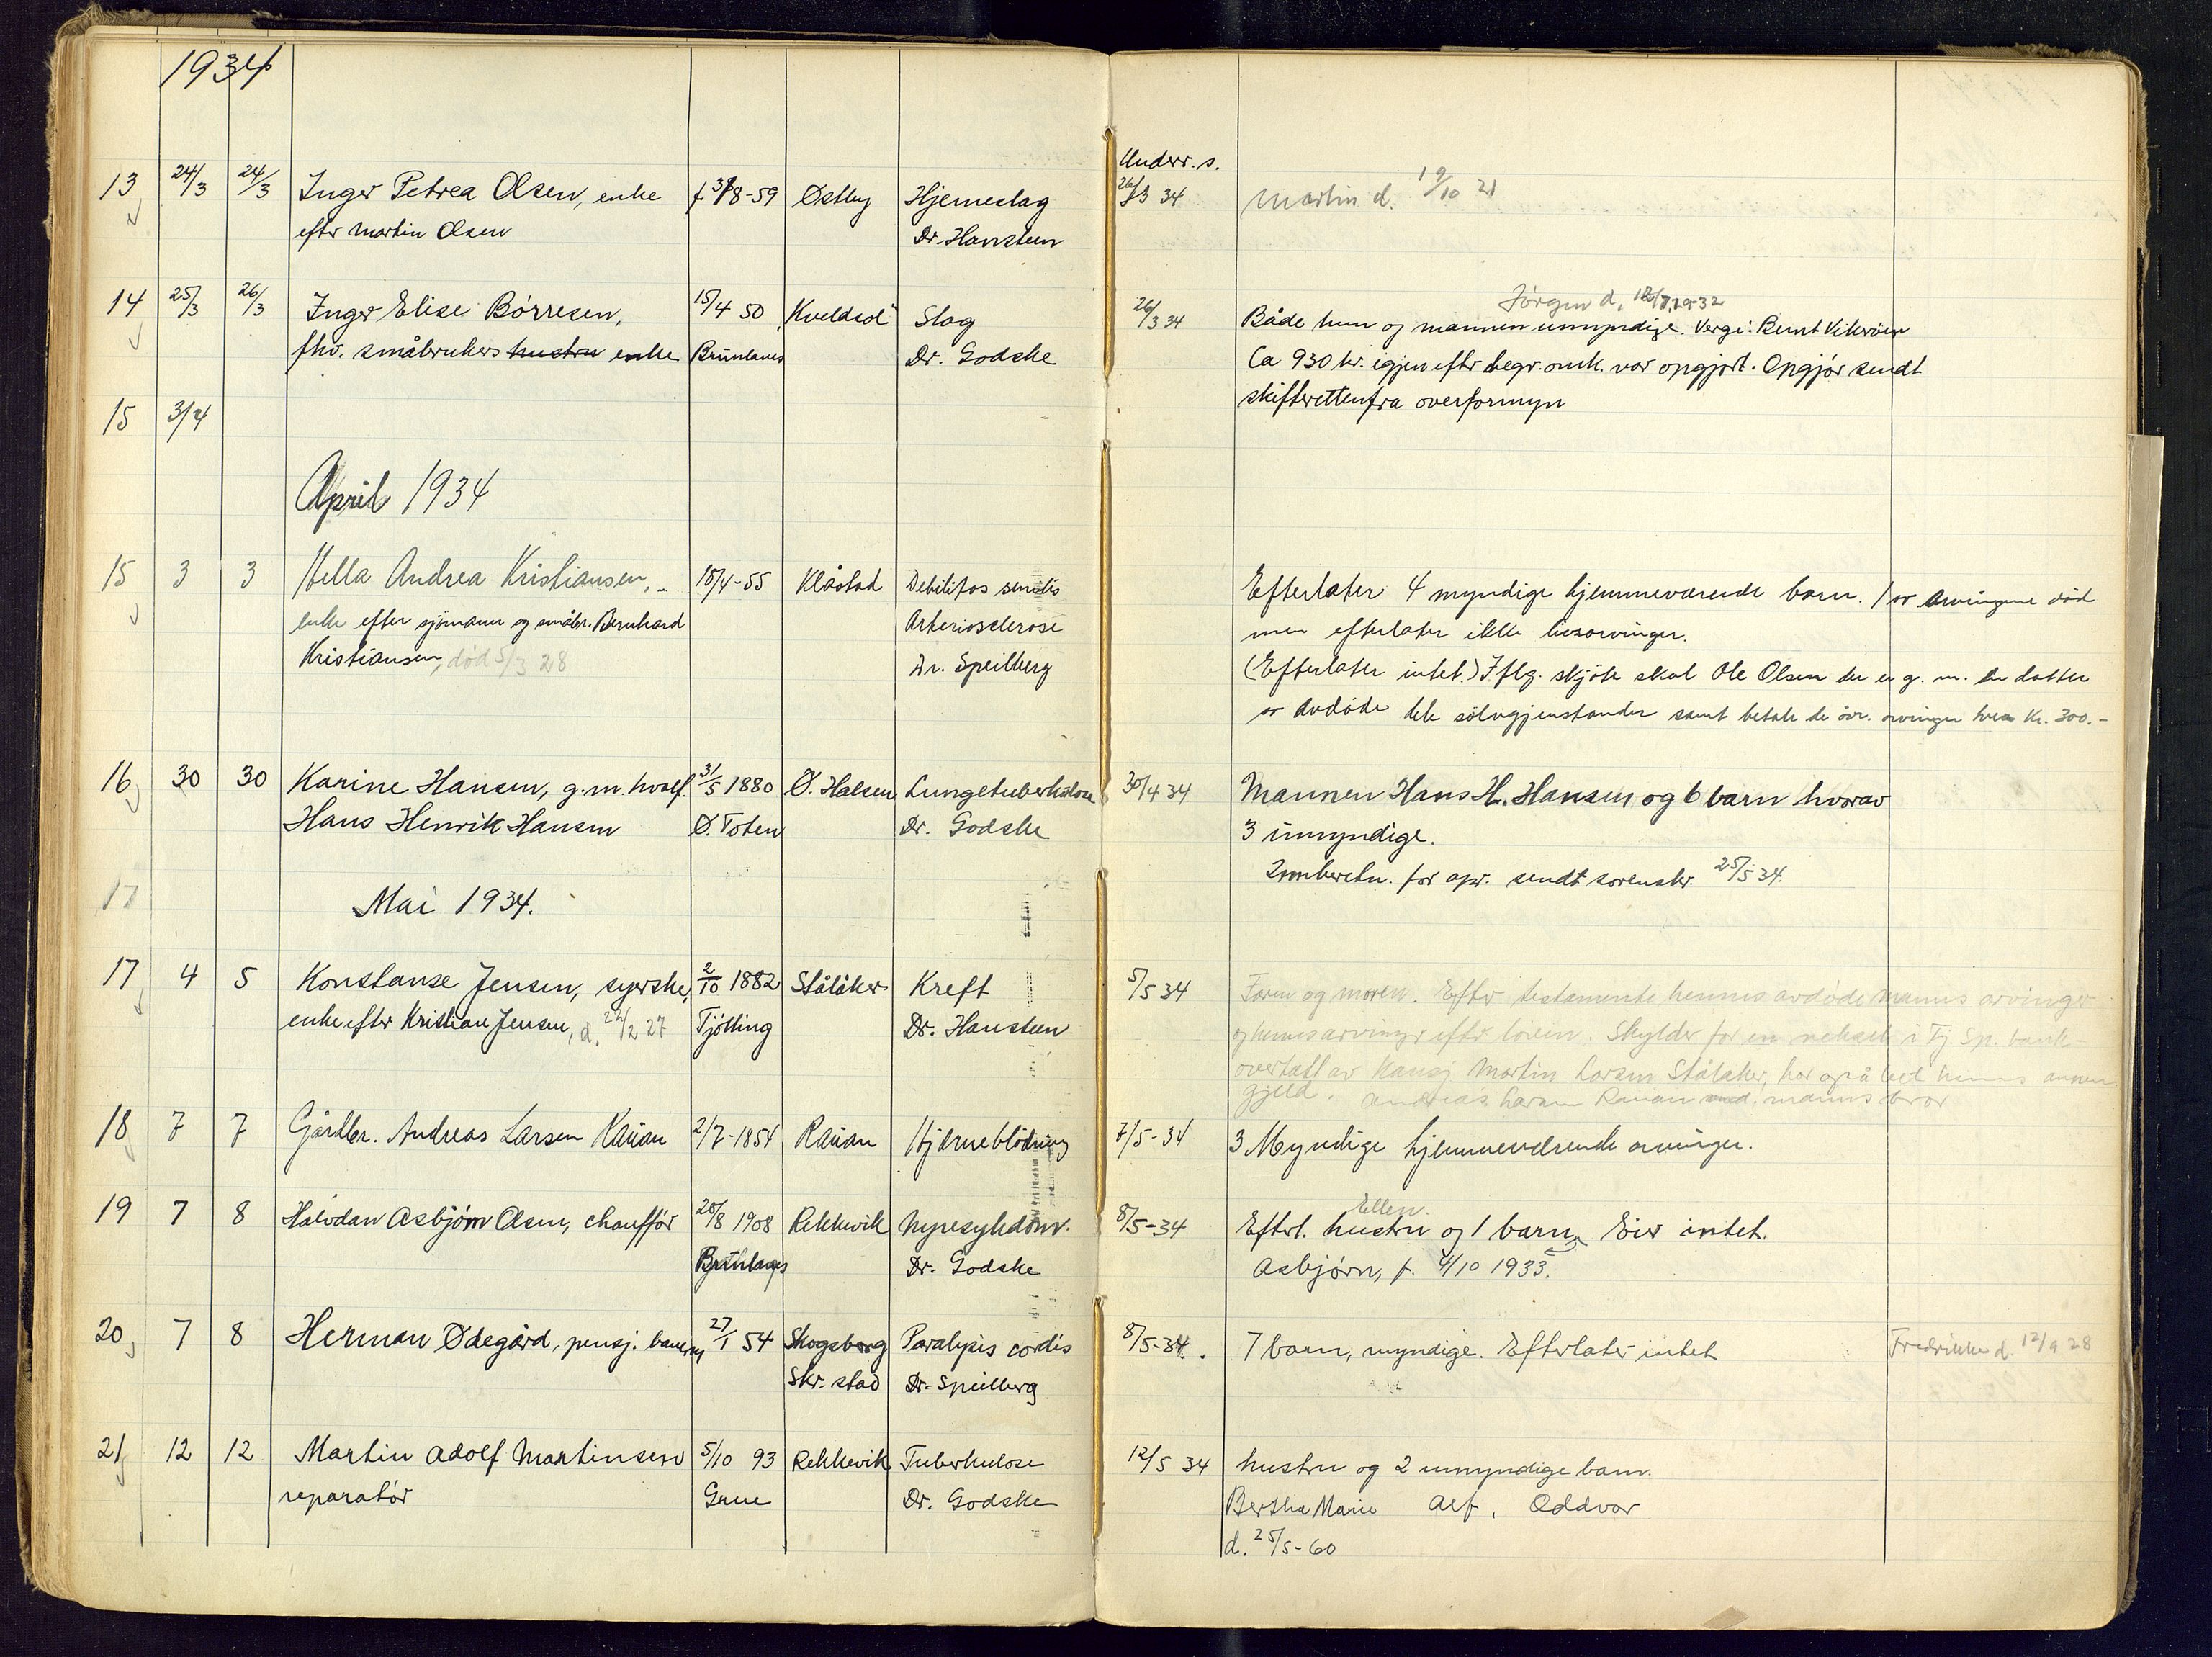 1934
Underr. s.
13 24/3 24/3 Inger Petrea Olsen, enke f 31/8-59 Østby Hjerneslag 26/3 34 Martin d. 19/10 21
efter Martin Olsen Dr. Hansteen
Jörgen d. 12/7 1932
14 25/3 26/3 Inger Elise Börresen, 15/4 50 Kveldsö Slag 26/3 34 Både hun og mannen umyndige. Verge: Bernt Vikerøen
fhv. småbrukers hustru enke Brunlanes Dr. Godske Ca 930 kr. igjen efter begr. omk. var opgjort. Opgjör sendt
skifteretten fra overformyn
15 3/4
April 1934
15 3 3 Hella Andrea Kristiansen, 18/4-55 Klåstad Debilitas senilis Efterlater 4 myndige hjemmeværende barn. 1 av arvingene död
enke efter sjömann og småbr. Bernhard Arteriosclerose men efterlater ikke livsarvinger.
Kristiansen, död 5/3 28 Dr. Speilberg (Efterlater intet.) Iflg. skjöte skal Ole Olsen der er g. m. en datter
av avdöde dele sölvgjenstander samt betale de övr. arvinger hver Kr. 300.-
16 30 30 Karine Hansen, g. m. hvalf. 31/5 1880 Ø. Halsen Lungetuberkulose 30/4 34 Mannen Hans H. Hansen og 6 barn hvorav
Hans Henrik Hansen Ø. Toten Dr. Godske 3 umyndige.
Innberetn. for apr. sendt sorenskr. 25/5 34.
17 Mai 1934.
17 4 5 Konstanse Jensen, syerske, 2/10 1882 Ståläker Kreft 5/5 34 Faren og moren. Efter testamente hennes avdöde manns arvinger
enke efter Kristian Jensen, d. 22/2 27 Tjölling Dr. Hansteen og hennes arvinger efter loven. Skylder for en veksel i Tj. Sp. bank
overtatt av Martin Larsen Ståläker, har også bet hennes annen
gjeld. Andreas Larsen Rauan manns bror
18 7 7 Gårdbr. Andreas Larsen Rauan 2/7-1854 Rauan Hjerneblödning 7/5-34 3 Myndige hjemmeværende arvinger.
Ellen.
19 7 8 Halvdan Asbjörn Olsen, chauffør 28/8 1908 Rekkevik Nyresykdom. 8/5-34 Efterl. hustru og 1 barn, Eier intet.
Brunlanes Dr. Godske Asbjörn, f. 4/10 1933.
20 7 8 Herman Ødegård, pensj. banevn 27/1 54 Skogsborg Paralysis cordis 8/5-34. 7 barn, myndige. Efterlater intet Fredrikke d. 12/9 28
Skr. stad Dr. Speilberg
21 12 12 Martin Adolf Martinsen 5/10 93 Rekkevik Tuberkulose 12/5 34 hustru og 2 umyndige barn.
reparatör Grue Dr. Godske Bertha Marie Alf, Oddvar
d. 25/5-60